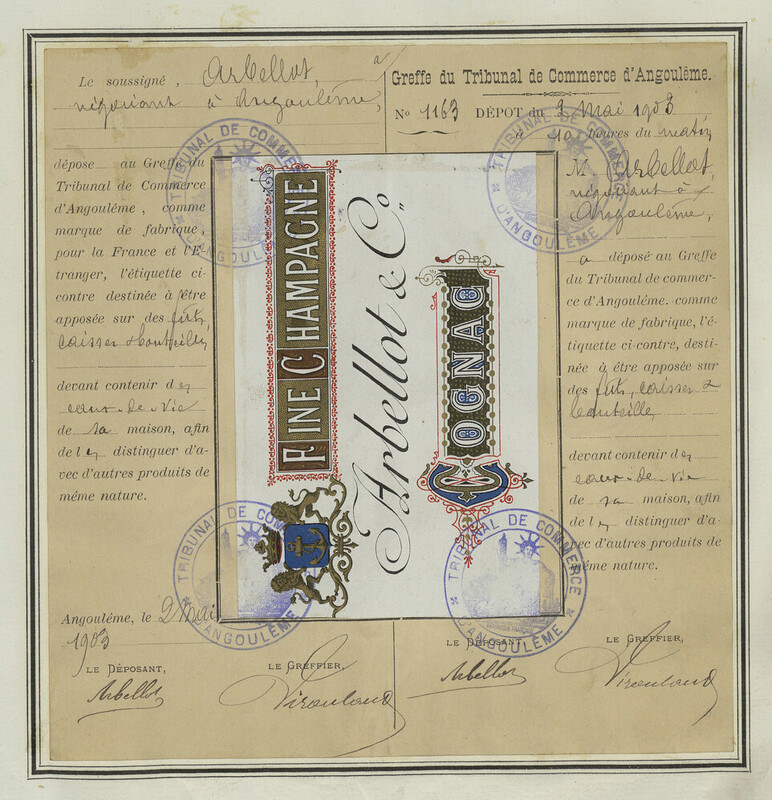 Le soussigné, Arbellot,
négociant à Angoulême,
dépose au Greffe du
Tribunal de Commerce
d'Angoulême, comme
marque de fabrique,
pour la France et l'É-
tranger, l'étiquette ci-
contre destinée à être
apposée sur des fûts,
caisses & bouteilles
devant contenir des
eaux-de-vie
de sa maison, afin
de les distinguer d'a-
vec d'autres produits de
même nature.
Angoulême, le 2 Mai
1903
LE DÉPOSANT,
Arbellot
LE GREFFIER,
FINE CHAMPAGNE
Arbellot & Co.
COGNAC
Greffe du Tribunal de Commerce d'Angoulême.
No 1163 DÉPOT du 2 Mai 1903
à 10 heures du matin
M Arbellot,
négociant à
Angoulême,
a déposé au Greffe
du Tribunal de commer-
ce d'Angoulême. comme
marque de fabrique, l'é-
tiquette ci-contre, desti-
née à être apposée sur
des fûts, caisses &
bouteilles,
devant contenir des
eaux-de-vie
de sa maison, afin
de les distinguer d'a-
vec d'autres produits de
même nature.
LE DÉPOSANT
Arbellot
LE GREFFIER,
TRIBUNAL DE COMMERCE
D'ANGOULÊME
TRIBUNAL DE COMMERCE
D'ANGOULÊME
TRIBUNAL DE COMMERCE
D'ANGOULÊME
TRIBUNAL DE COMMERCE
D'ANGOULÊME